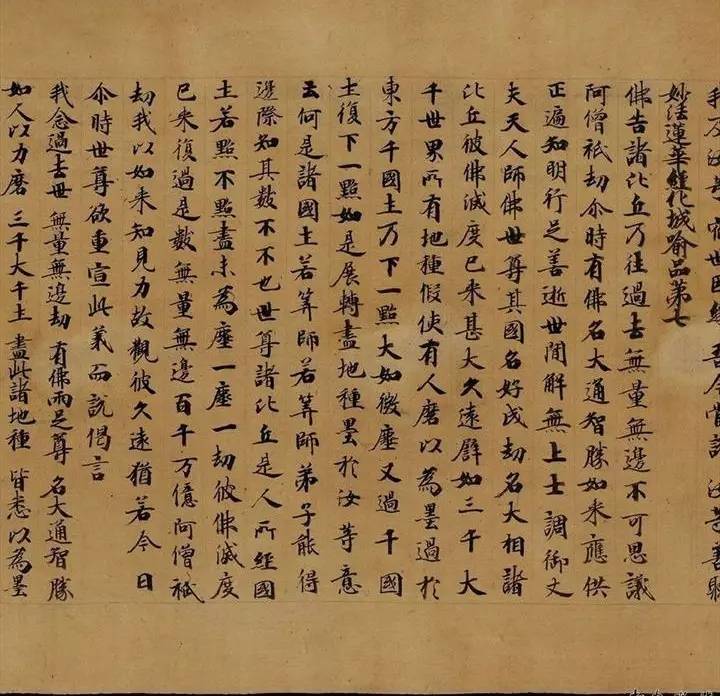 宿世因緣 吾今當說 汝等善聽
妙法蓮華經化城喻品第七
佛告諸比丘乃往過去無量無邊不可思議
阿僧祇劫尒時有佛名大通智勝如来應供
正遍知明行足善逝世間解無上士調御丈
夫天人師佛世尊其國名好成劫名大相諸
比丘彼佛滅度已来甚大久遠譬如三千大
千世界所有地種假使有人磨以為墨過於
東方千國土乃下一點大如微塵又過千國
土復下一點如是展轉盡地種墨於汝等意
云何是諸國土若筭師若筭師弟子能得
邊際知其數不不也世尊諸比丘是人所經國
土若點不點盡末為塵一塵一劫彼佛滅度
已来復過是數無量無邊百千万億阿僧祇
劫我以如来知見力故觀彼久遠猶若今日
尒時世尊欲重宣此義而說偈言
我念過去世 無量無邊劫 有佛兩足尊 名大通智勝
如人以力磨 三千大千土 盡此諸地種 皆悉以為墨